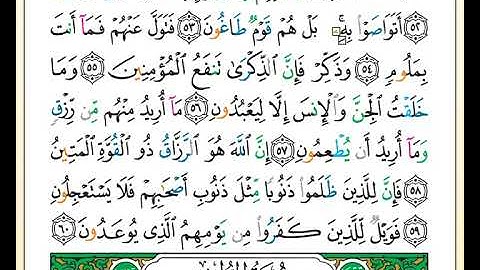 ٥٢ أَتَوَاصَوْا۟ بِهِۦ ۚ بَلْ هُمْ قَوْمٌ طَاغُونَ ٥٣ فَتَوَلَّ عَنْهُمْ فَمَآ أَنتَ
بِمَلُومٍ ٥٤ وَذَكِّرْ فَإِنَّ ٱلذِّكْرَىٰ تَنفَعُ ٱلْمُؤْمِنِينَ ٥٥ وَمَا
خَلَقْتُ ٱلْجِنَّ وَٱلْإِنسَ إِلَّا لِيَعْبُدُونِ ٥٦ مَآ أُرِيدُ مِنْهُم مِّن رِّزْقٍ
وَمَآ أُرِيدُ أَن يُطْعِمُونِ ٥٧ إِنَّ ٱللَّهَ هُوَ ٱلرَّزَّاقُ ذُو ٱلْقُوَّةِ ٱلْمَتِينُ
٥٨ فَإِنَّ لِلَّذِينَ ظَلَمُوا۟ ذَنُوبًا مِّثْلَ ذَنُوبِ أَصْحَٰبِهِمْ فَلَا يَسْتَعْجِلُونِ
٥٩ فَوَيْلٌ لِّلَّذِينَ كَفَرُوا۟ مِن يَوْمِهِمُ ٱلَّذِى يُوعَدُونَ ٦٠